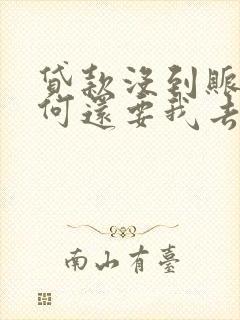 贷款没到賬
何還要我去
南山有臺